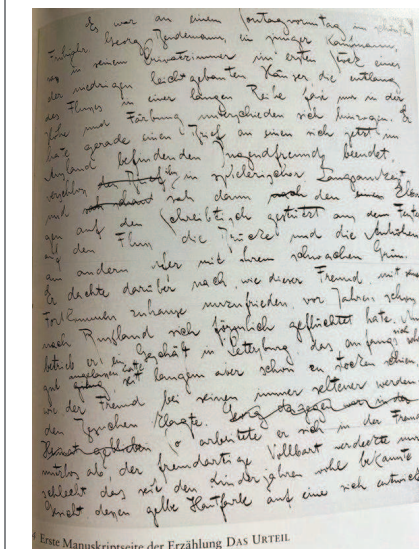 Es war an einem Sonntagvormittag im schönsten
Frühjahr. Georg Bendemann, ein junger Kaufmann,
sass in seinem Privatzimmer im ersten Stock eines
der niedrigen leichtgebauten Häuser die entlang
des Flusses in einer langen Reihe fast nur in der
Höhe und Färbung unterschieden sich hinzogen. Er
hatte gerade einen Brief an einen sich jetzt im
Ausland befindenden Jugendfreund beendet,
verschloss den Brief ihn in spielerischer Langsamkeit
und sah dann den Ellbo
gen auf den Schreibtisch gestützt aus dem Fenster
auf den Fluss, die Brücke und die Anhöhen
am andern Ufer mit ihrem schwachen Grün.
Er dachte darüber nach, wie dieser Freund, mit seinem
Fortkommen zuhause unzufrieden, vor Jahren schon
nach Russland sich förmlich geflüchtet hatte. Nun
betrieb er ein Geschäft in Petersburg das anfangs sich sehr
gut angelassen hatte seit langem aber schon zu stocken schien,
wie der Freund bei seinen immer seltener werden
den Besuchen klagte. Georg dagegen war in der
Heimat geblieben So arbeitete er sich in der Fremde
nutzlos ab, der fremdartige Vollbart verdeckte nur
schlecht das seit den Kinderjahren wohl bekannte
Gesicht dessen gelbe Hautfarbe auf eine sich entwick
Erste Manuskriptseite der Erzählung DAS URTEIL